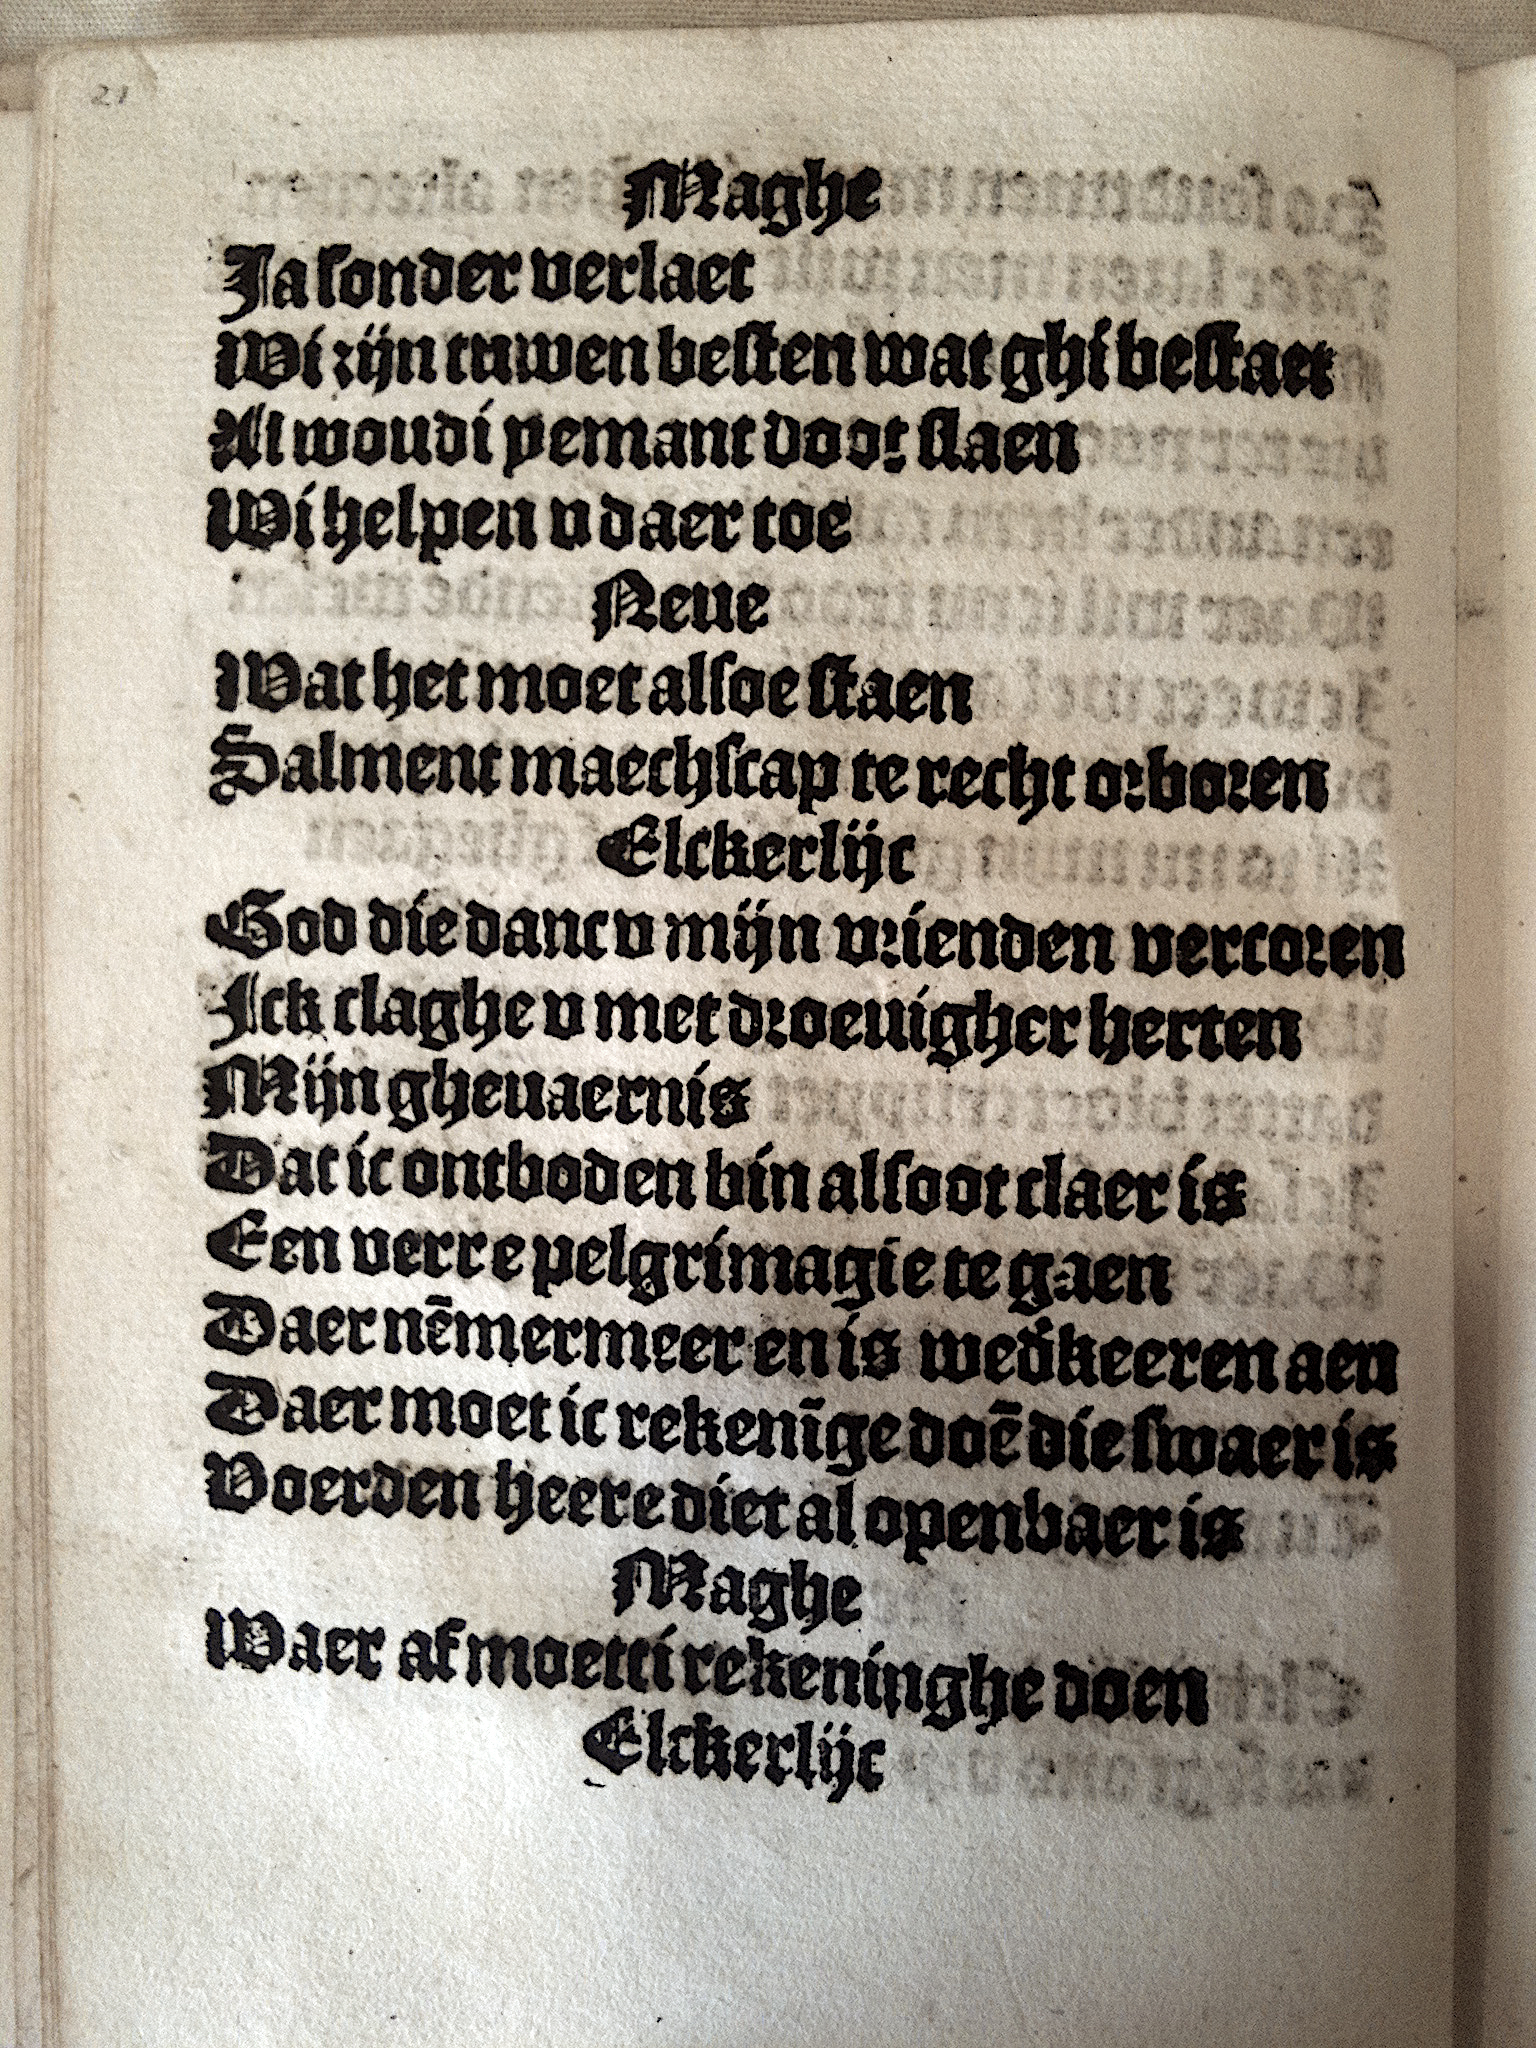 21
Maghe
Ja sonder verlaet
Wi zijn tuwen besten wat ghi bestaet
Al woudi yemant doot slaen
Wi helpen v daer toe
Neue
Wat het moet alsoe staen
Salment maechscap te recht orboren
Elckerlijc
God die danc v mijn vrienden vercoren
Ick claghe v met droeuigher herten
Mijn gheuaernis
Dat ic ontboden bin alsoot claer is
Een verre pelgrimagie te gaen
Daer nēmermeer en is wed̄keeren aen
Daer moet ic rekenīge doē die swaer is
Voerden heere diet al openbaer is
Maghe
Waer af moetti rekeninghe doen
Elckerlijc